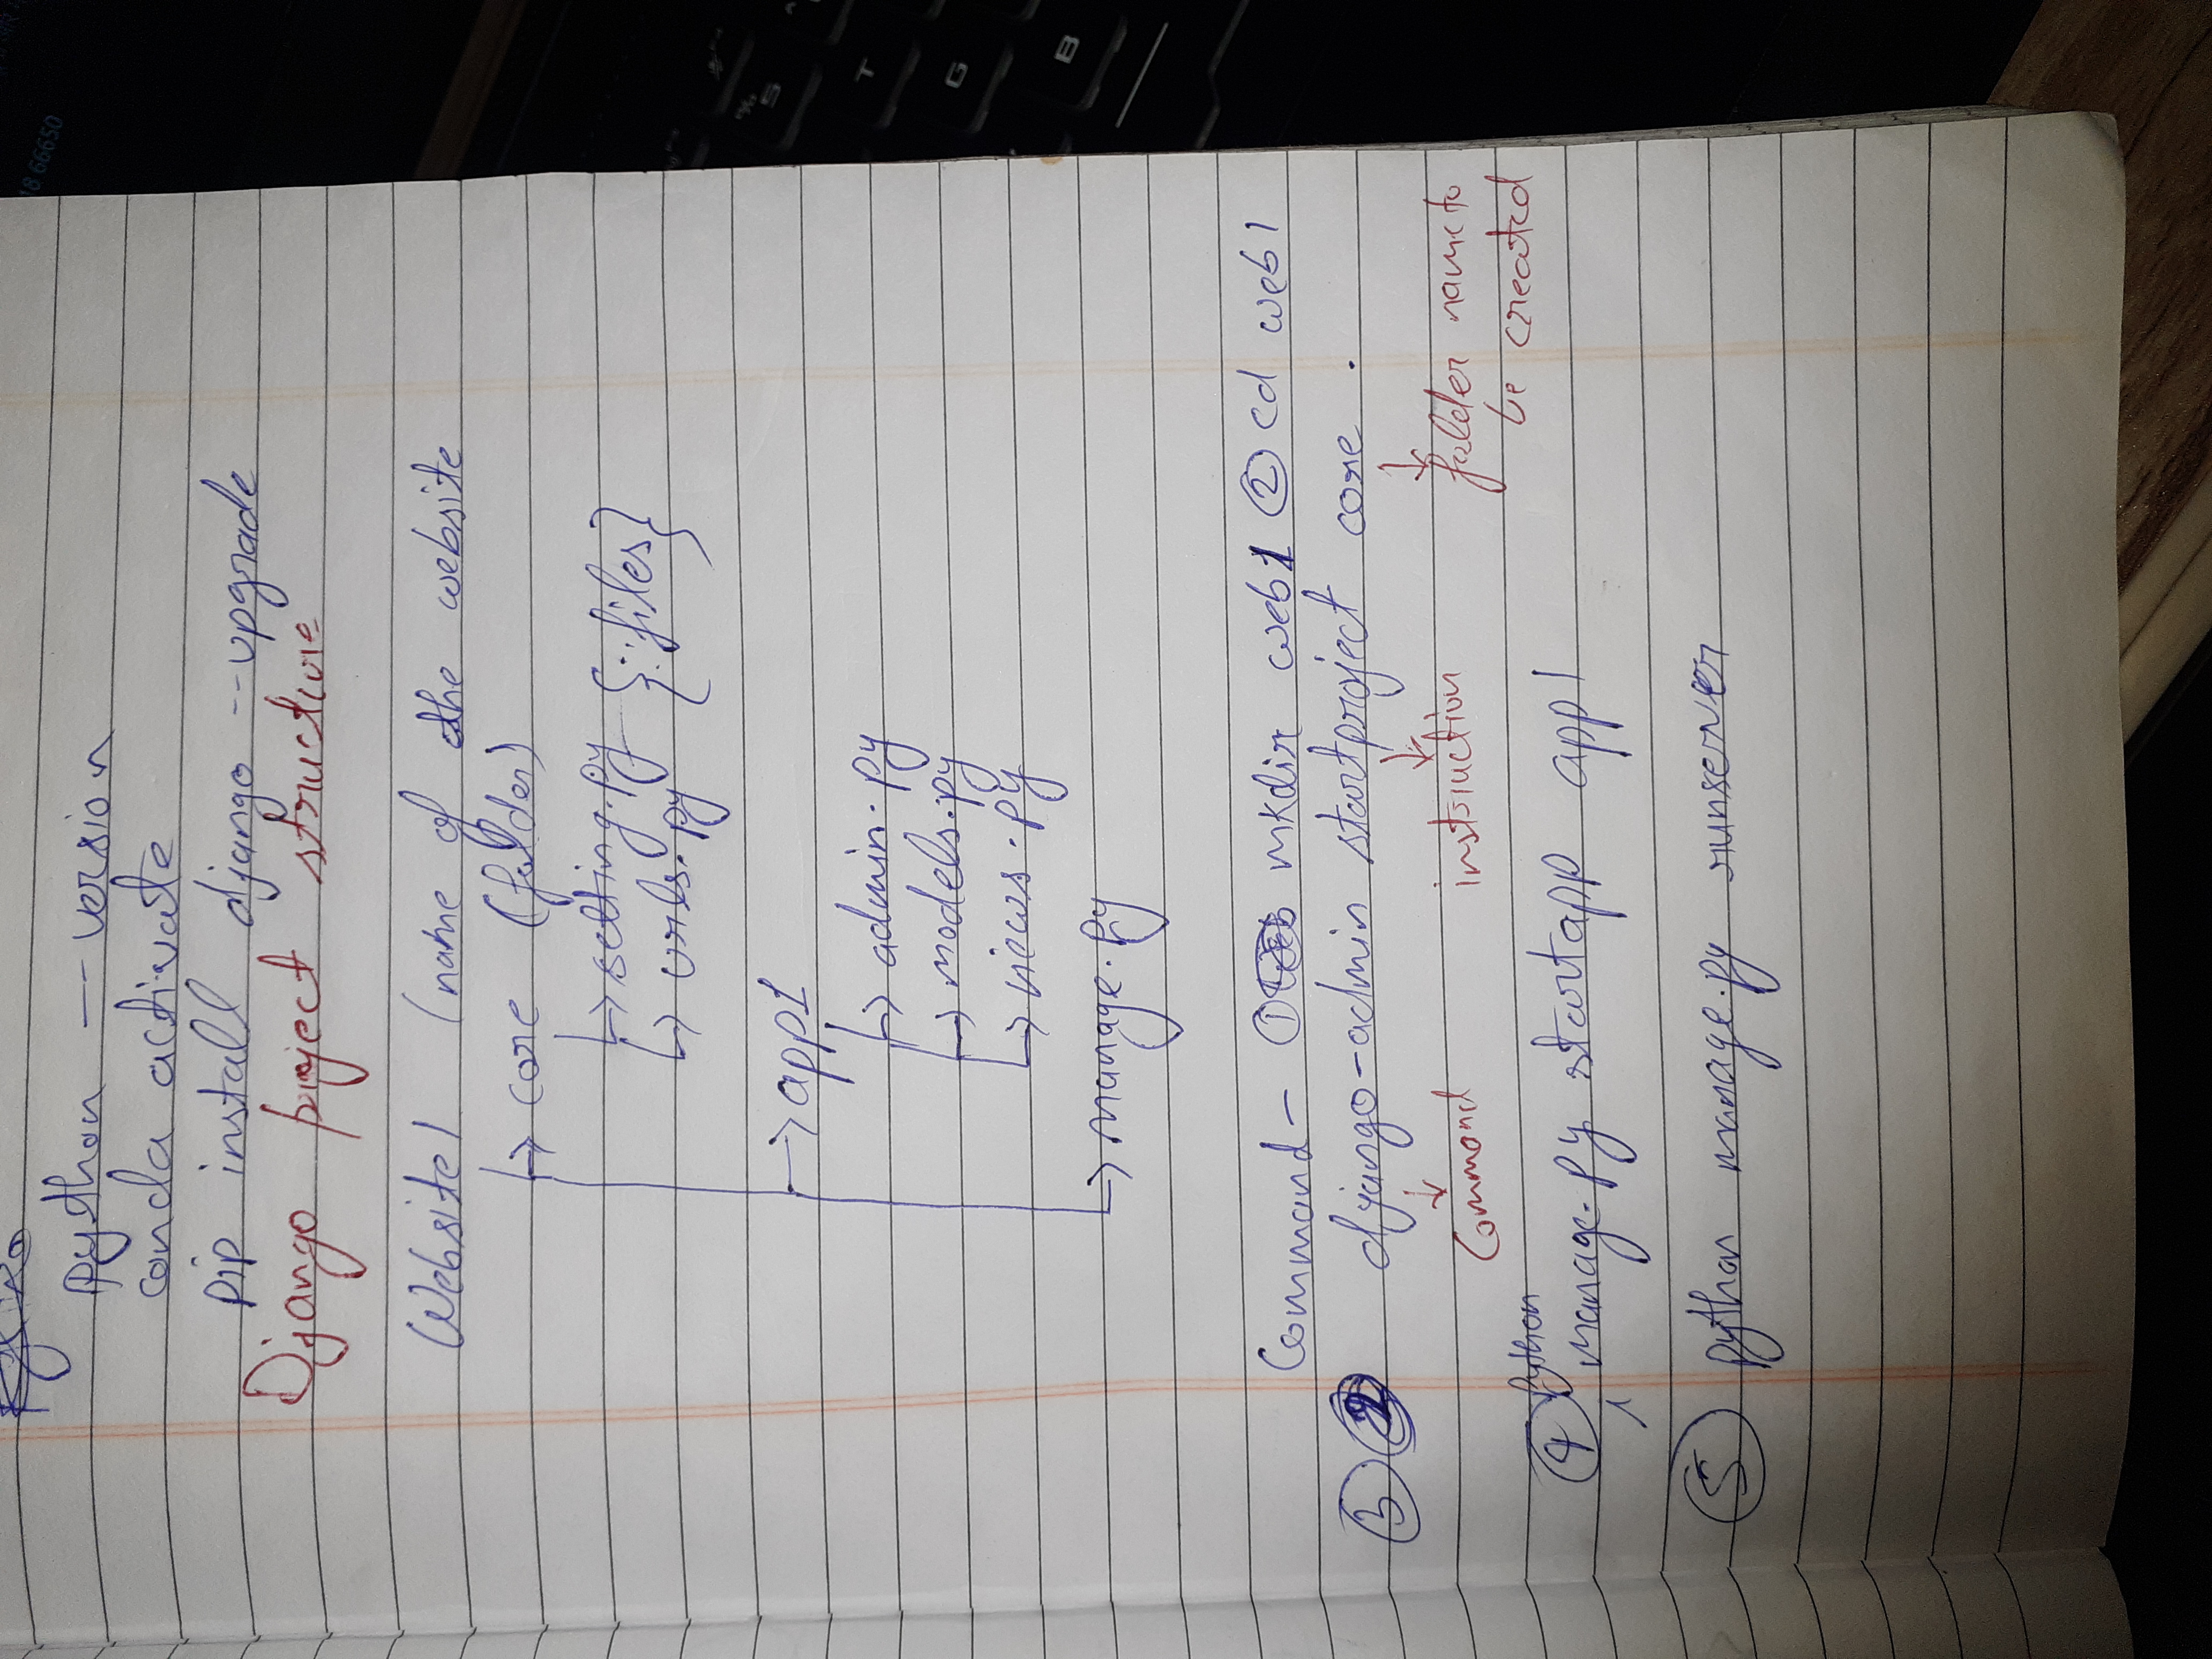 python -- version
conda activate
pip install django --upgrade
Django project structure
Website1 (name of the website
core (folder)
setting.py
{ files}
urls.py
app1
admin.py
models.py
views.py
manage.py
Command - ① mkdir web1 ② cd web1
③ django-admin startproject core .
Command instruction folder name to
be created
python
④ manage.py startapp app1
⑤ python manage.py runserver
18 66650
S
T
G
B